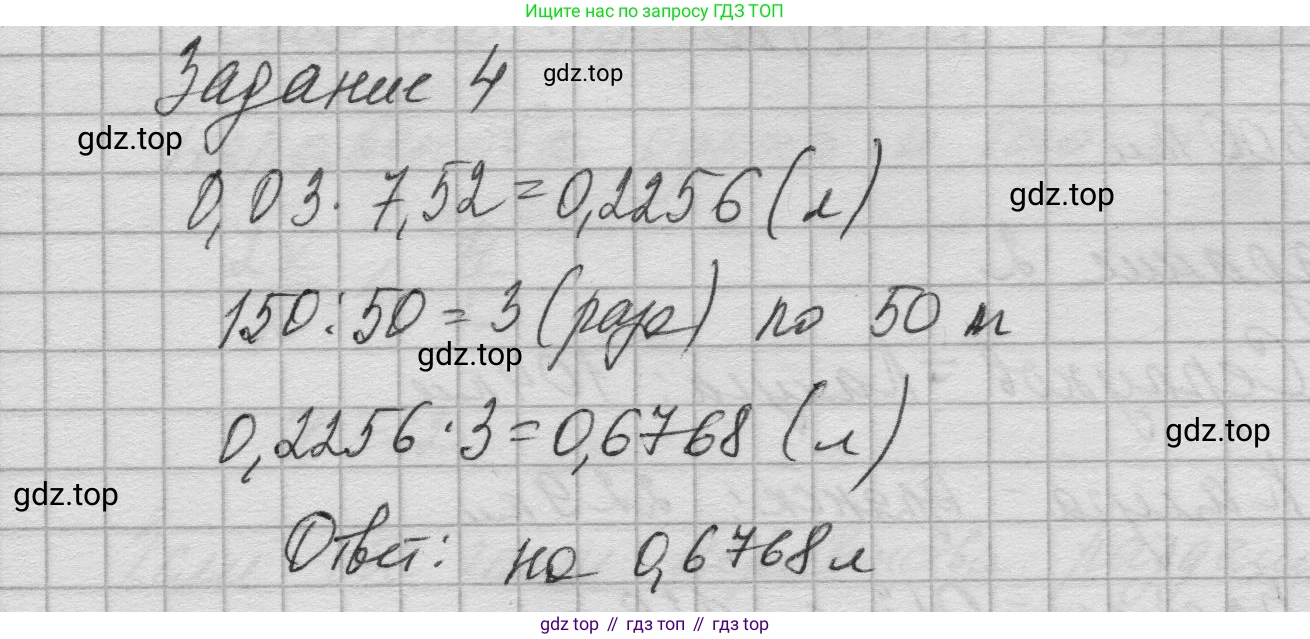 Ищите нас по запросу ГДЗ ТОП
Задание 4
gdz.top
gdz.top
0,03 · 7,52 = 0,2256 (л)
gdz.top
150 : 50 = 3 (раза) по 50 м
gdz.top
0,2256 · 3 = 0,6768 (л)
gdz.top
gdz.top
Ответ: на 0,6768 л
gdz top // гдз топ // gdz top